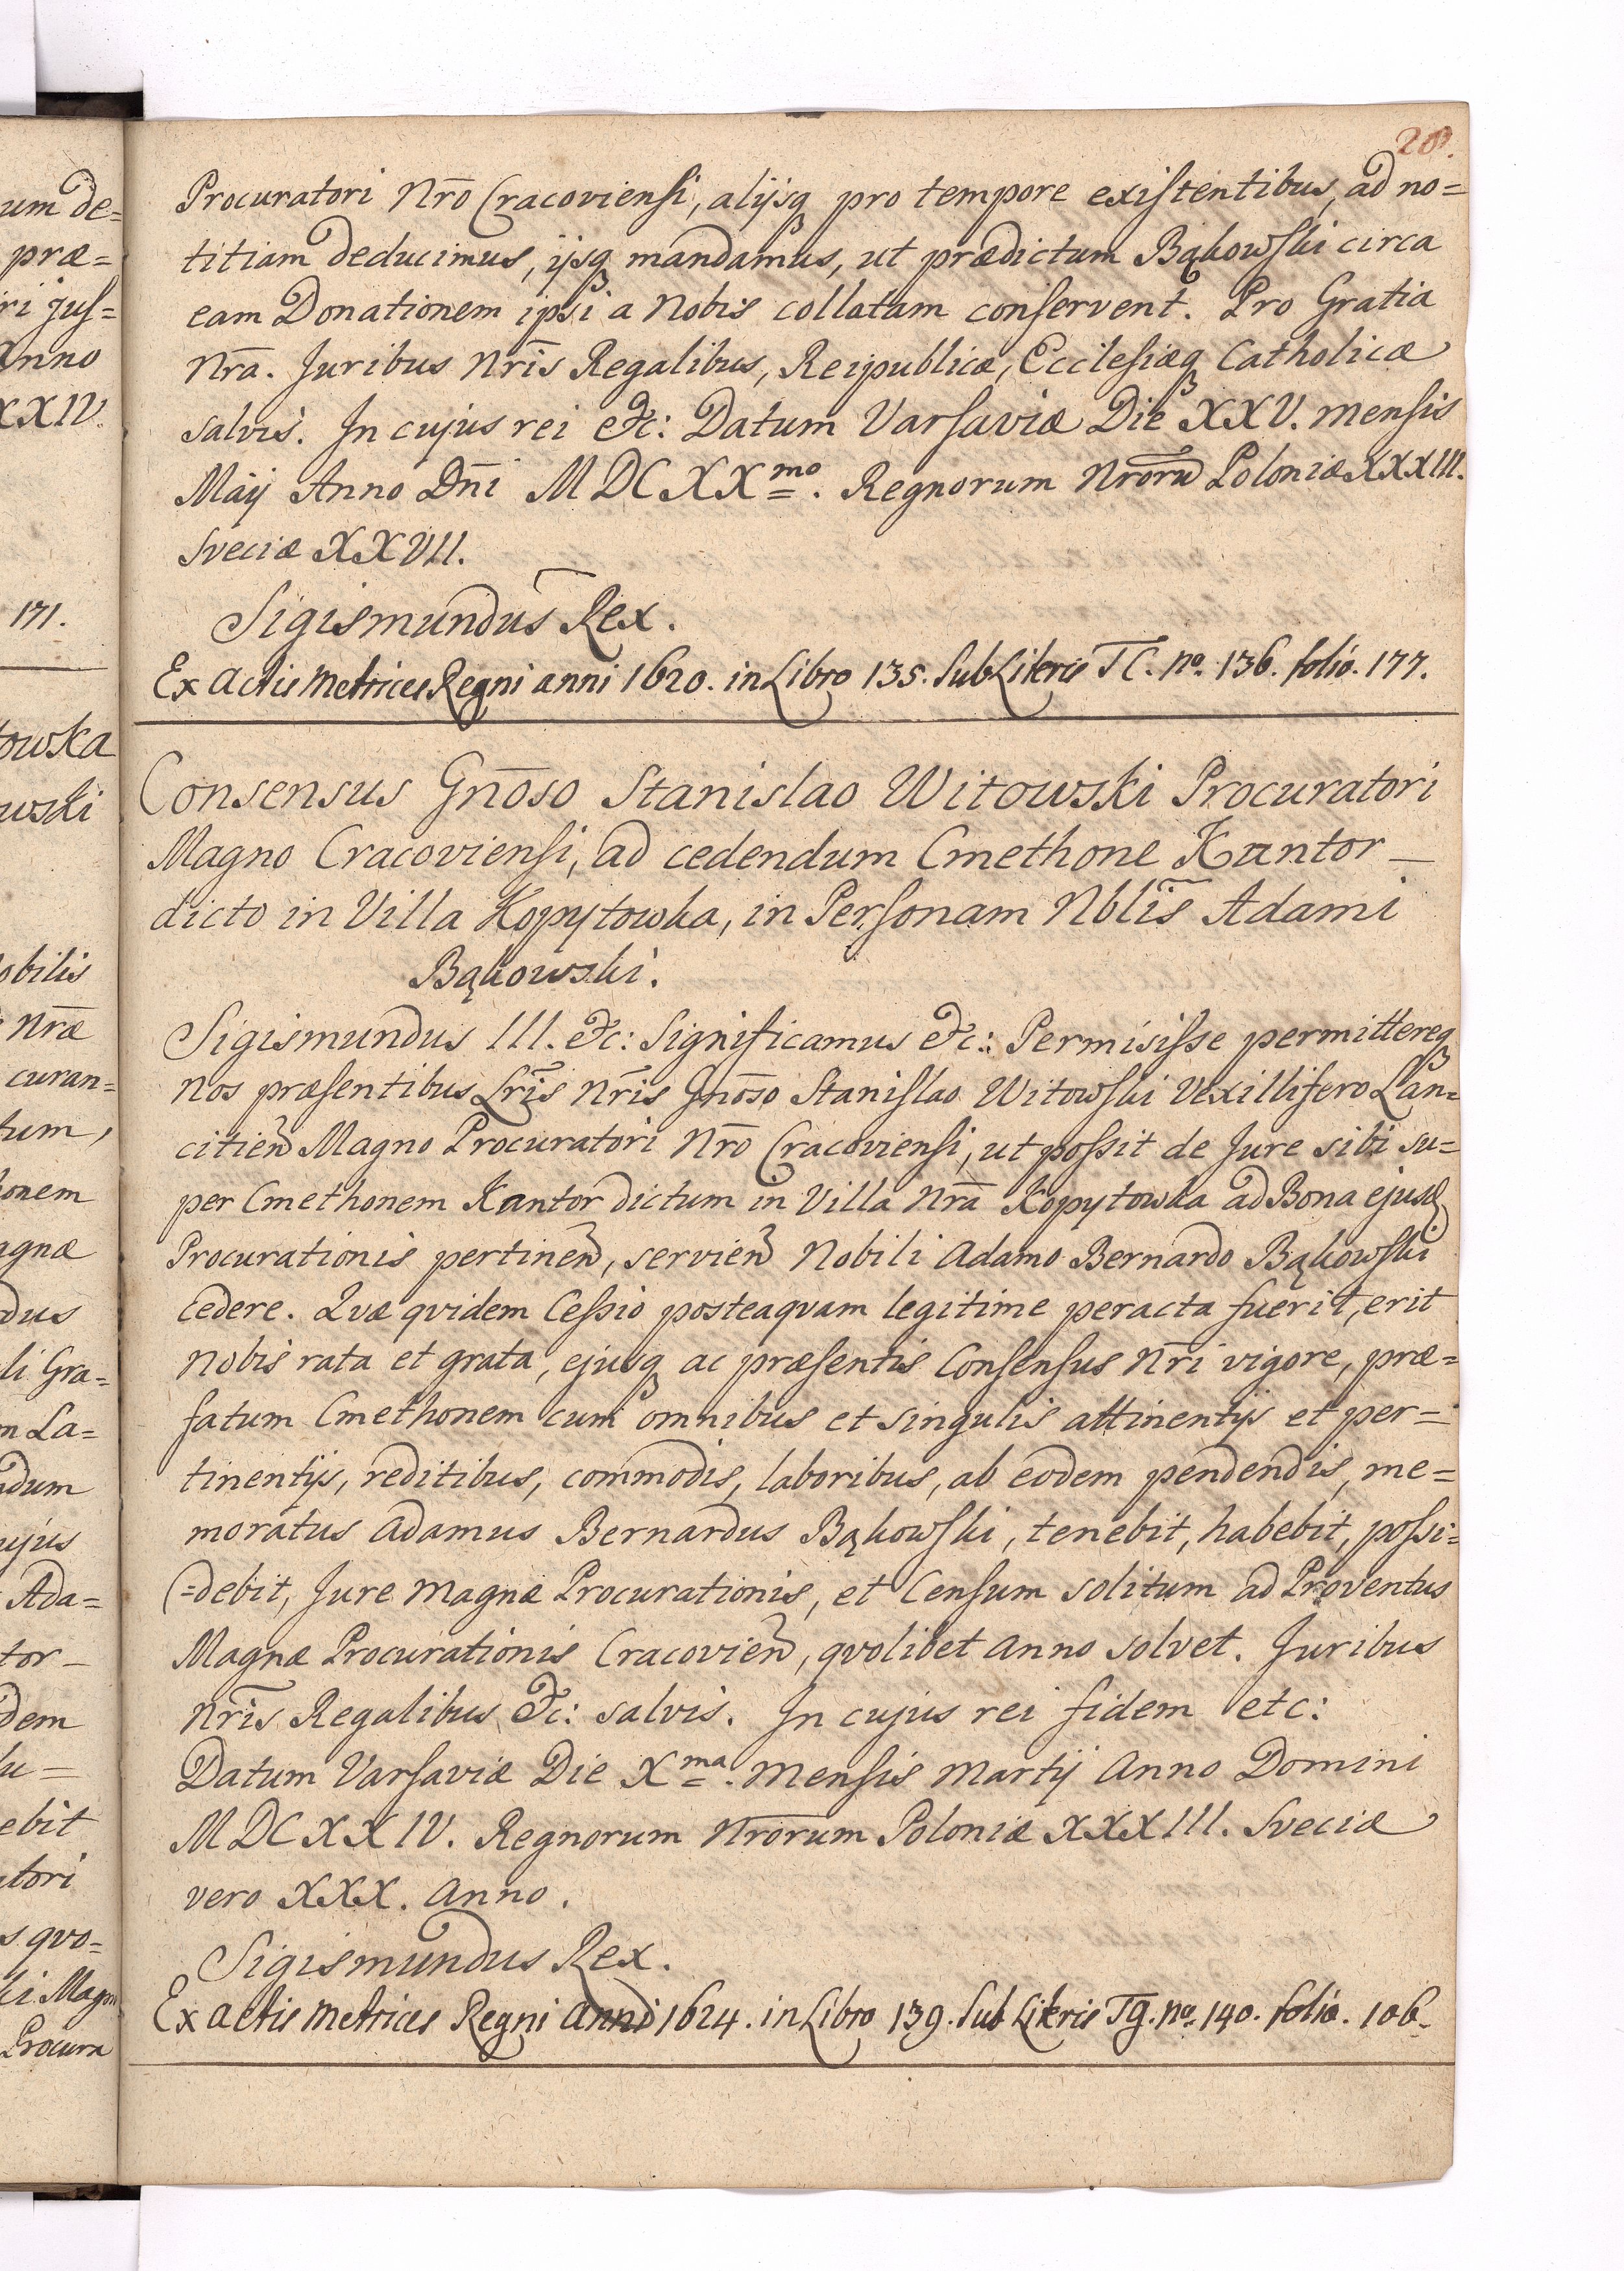 20.
Procuratori Nr̄o Cracoviensi, alijsq pro tempore existentibus, ad no=
titiam deducimus, ijsq mandamus, ut prædictum Bąkowski circa
eam Donationem ipsi a Nobis collatam conservent. Pro Gratia
Nr̄a. Juribus Nr̄is Regalibus, Reipublicæ, Ecclesiæq Catholicæ
salvis. In cujus rei &c: Datum Varsaviæ Die XXV. mensis
Maÿ Anno Dn̄i MDCXXmo. Regnorum Nr̄orū Poloniæ XXXIII.
Sveciæ XXVII.
Sigismundus Rex.
Ex Actis Metrices Regni anni 1620. in Libro 135. sub Literis TC. no. 136. folio. 177.
Consensus Gn̄oso Stanislao Witowski Procuratori
Magno Cracoviensi, ad cedendum Cmethone Kantor_
dicto in Villa Kopytowka, in Personam Nblis̄ Adami
Bąkowski.
Sigismundus III. &c: Significamus &c: Permisisse permittereq
Nos præsentibus Lr̄is Nr̄is Gn̄oso Stanislao Witowski Vexillifero Lan=
citien̄ Magno Procuratori Nr̄o Cracoviensi, ut possit de Jure sibi su=
per Cmethonem Kantor dictum in Villa Nr̄a Kopytowka ad Bona ejusd
Procurationis pertinen̄, servien̄ Nobili Adamo Bernardo Bąkowski
cedere. Qvæ qvidem Cessio posteaqvam legitime peracta fuerit, erit
Nobis rata et grata, ejusq ac præsentis Consensus Nr̄i vigore, præ=
fatum Cmethonem cum omnibus et singulis attinentijs et per=
tinentijs, reditibus, commodis, laboribus, ab eodem pendendis, me=
moratus Adamus Bernardus Bąkowski, tenebit, habebit, possi=
=debit, Jure Magnæ Procurationis, et Censum solitum ad Proventus
Magnæ Procurationis Cracovien̄, qvolibet Anno solvet. Juribus
Nr̄is Regalibus &c: salvis. In cujus rei fidem etc:
Datum Varsaviæ Die Xma. Mensis Martij Anno Domini
MDCXXIV. Regnorum Nr̄orum Poloniæ XXXIII. Sveciæ
vero XXX. Anno.
Sigismundus Rex.
Ex Actis Metrices Regni Anni 1624. in Libro 139. Sub Literis Tg. no. 140. folio. 106.